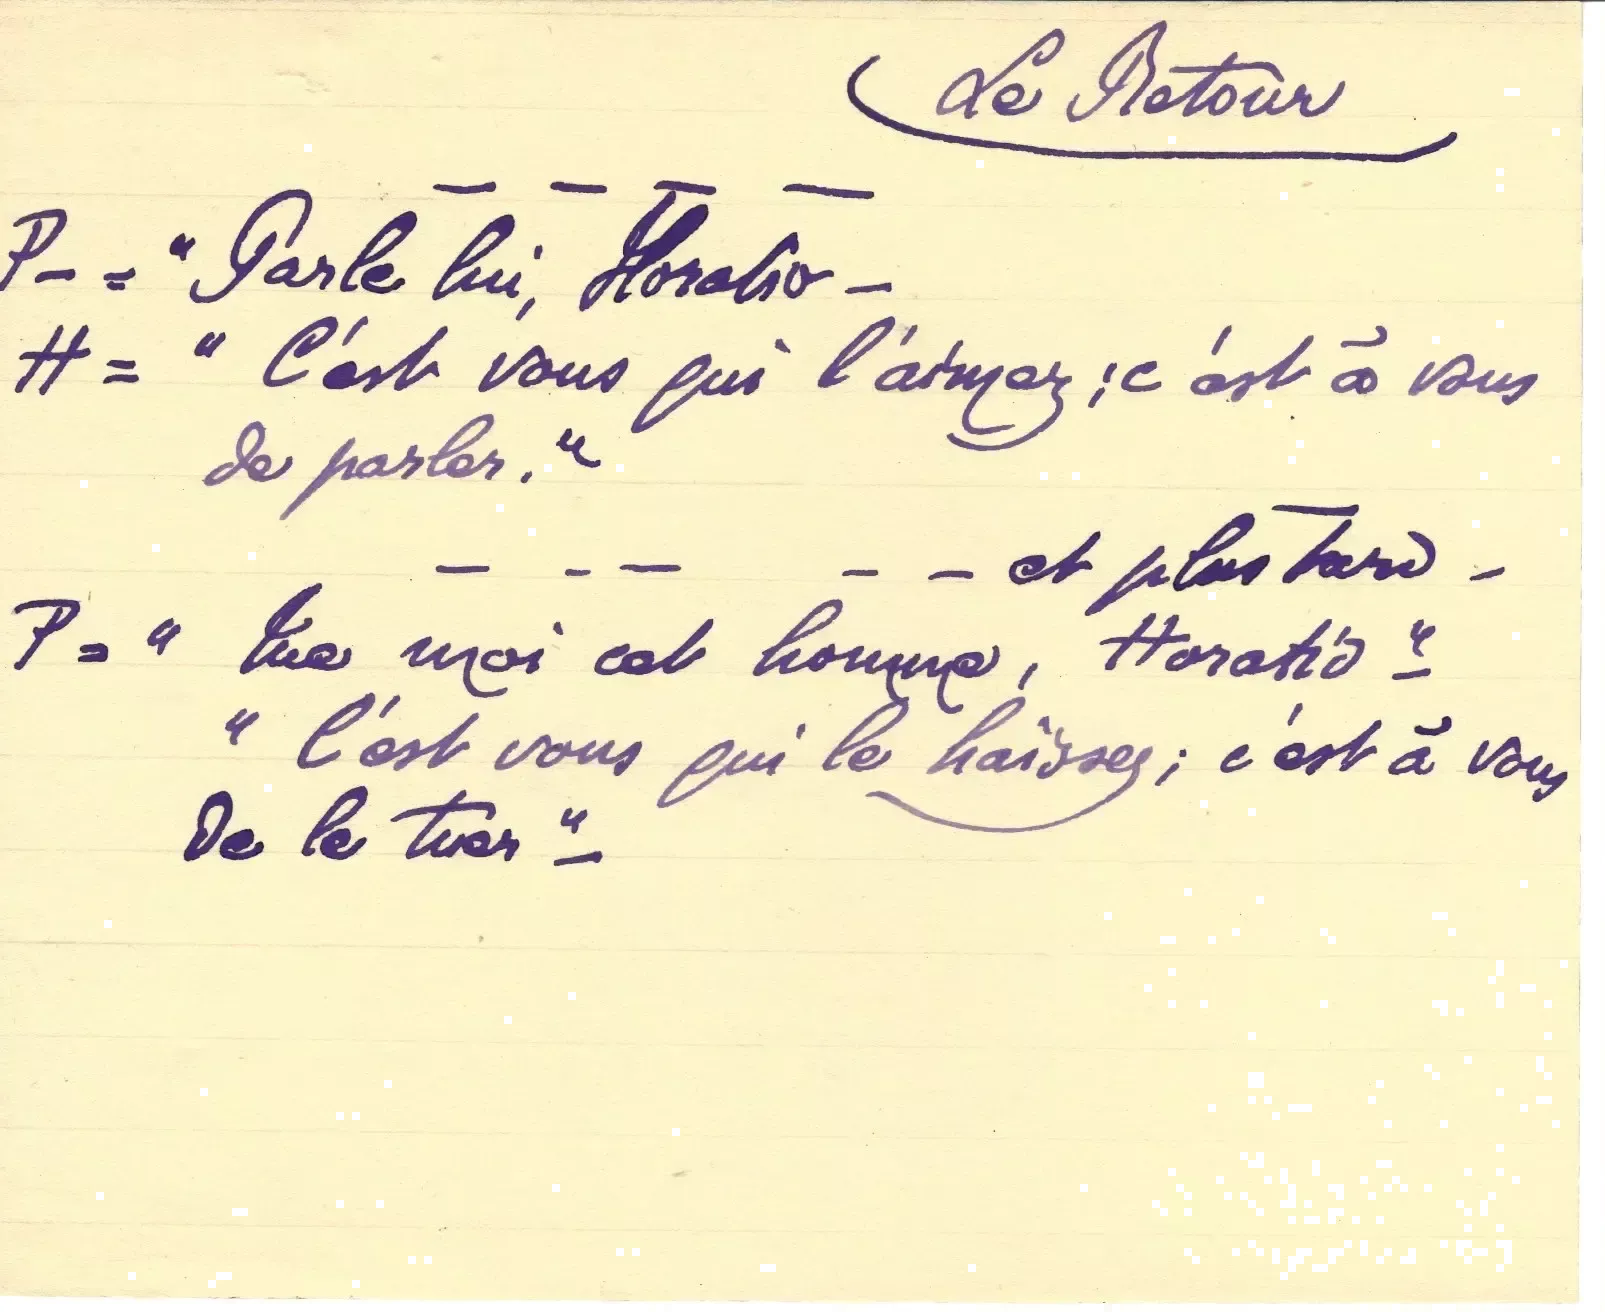 Le Retour
— — — —
P— = " Parle lui, Horatio —
H = " C'est vous qui l'aimez ; c'est à vous
de parler. "
— - — - — et plus tard -
P = " Tue moi cet homme, Horatio "
" C'est vous qui le haïssez ; c'est à vous
de le tuer "